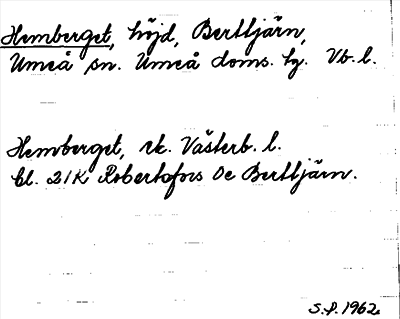 Hemberget, höjd, Berttjärn,
Umeå sn. Umeå doms. hg. Vb. l.
Hemberget, rk. Västerb. l.
bl. 21K Robertsfors 0e Berttjärn.
S.P. 1962.